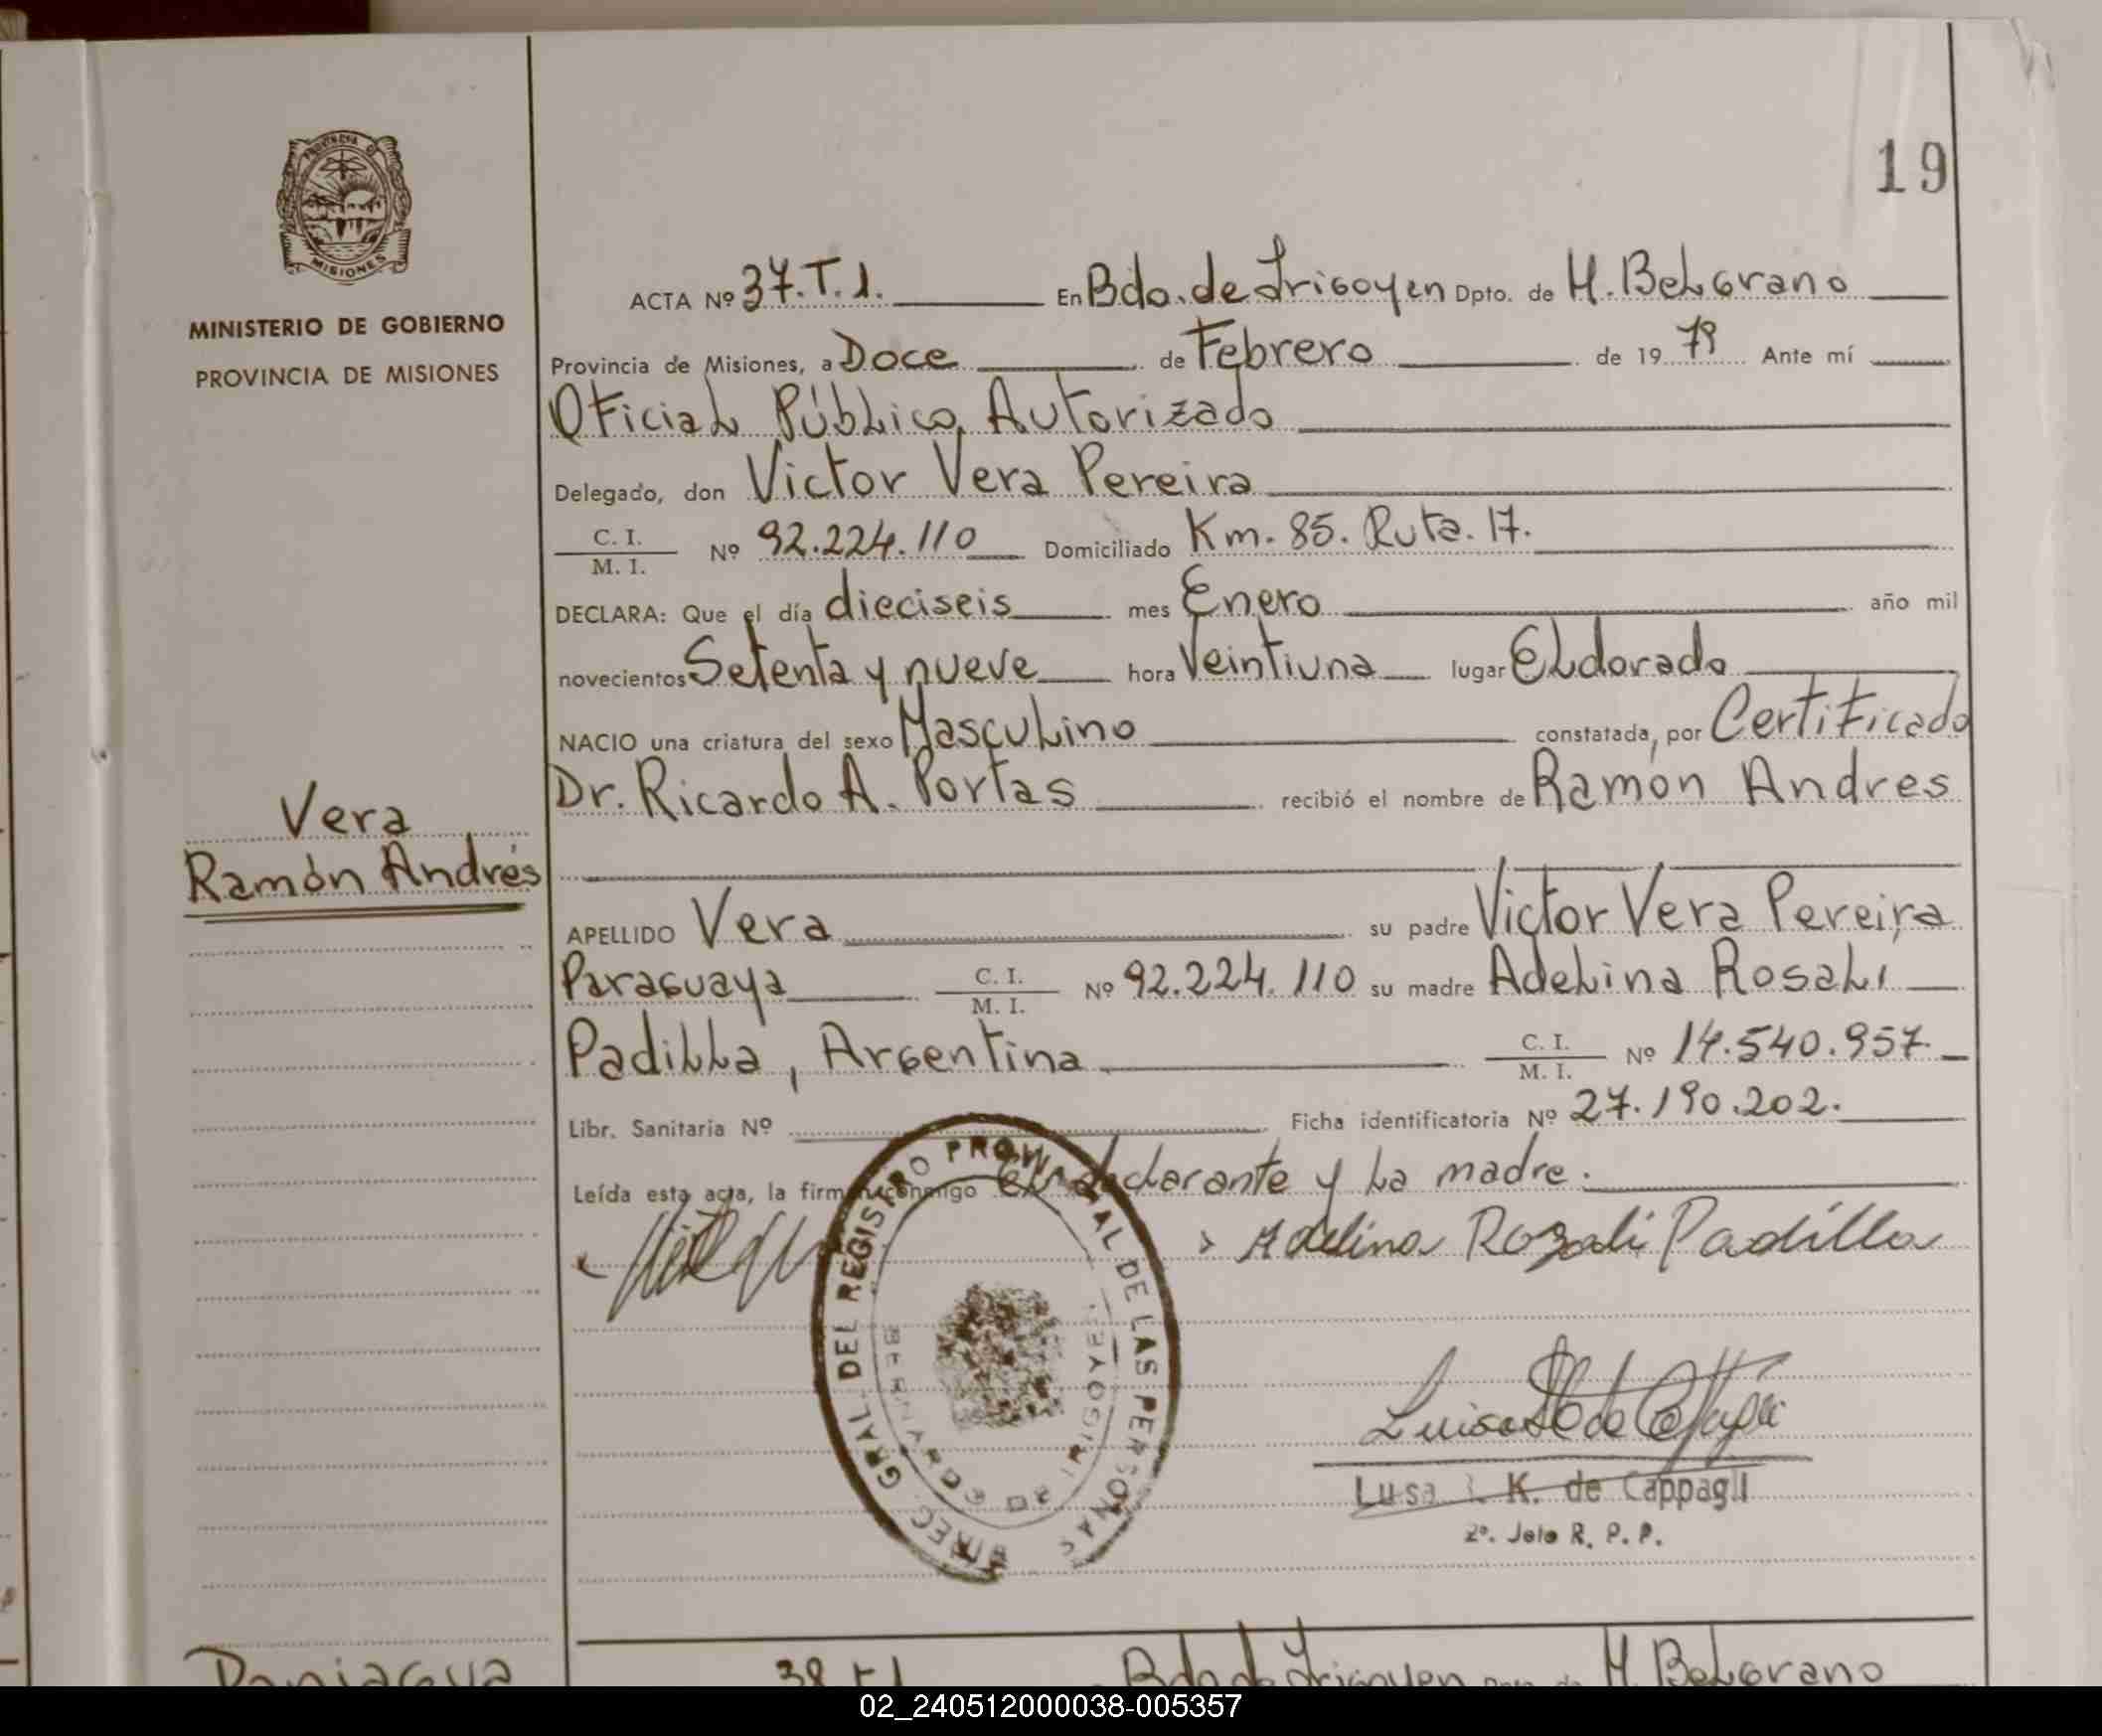 19
PROVINCIA DE
MISIONES
MINISTERIO DE GOBIERNO
PROVINCIA DE MISIONES
Vera
Ramón Andrés
ACTA Nº 37.T.1. En Bdo. de Irigoyen Dpto. de M. Belgrano
Provincia de Misiones, a Doce de Febrero de 19 79 Ante mí
Oficial Público Autorizado
Delegado, don Victor Vera Pereira
C. I. / M. I. Nº 92.224.110 Domiciliado Km. 85. Ruta. 17.
DECLARA: Que el día dieciseis mes Enero año mil
novecientos Setenta y nueve hora Veintiuna lugar Eldorado
NACIO una criatura del sexo Masculino constatada, por Certificado
Dr. Ricardo A. Portas recibió el nombre de Ramón Andres
APELLIDO Vera su padre Victor Vera Pereira
Paraguaya C. I. / M. I. Nº 92.224.110 su madre Adelina Rosali
Padilla, Argentina C. I. / M. I. Nº 14.540.957.
Libr. Sanitaria Nº Ficha identificatoria Nº 27.190.202.
Leída esta acta, la firman conmigo el declarante y la madre.
Adelina Rozali Padilla
DIREC. GRAL. DEL REGISTRO PROVINCIAL DE LAS PERSONAS
BERNARDO DE IRIGOYEN
Lusa K. de Cappagli
2º. Jefe R. P. P.
38 T1 Bdo de Irigoyen Dpto. de M. Belgrano
02_240512000038-005357